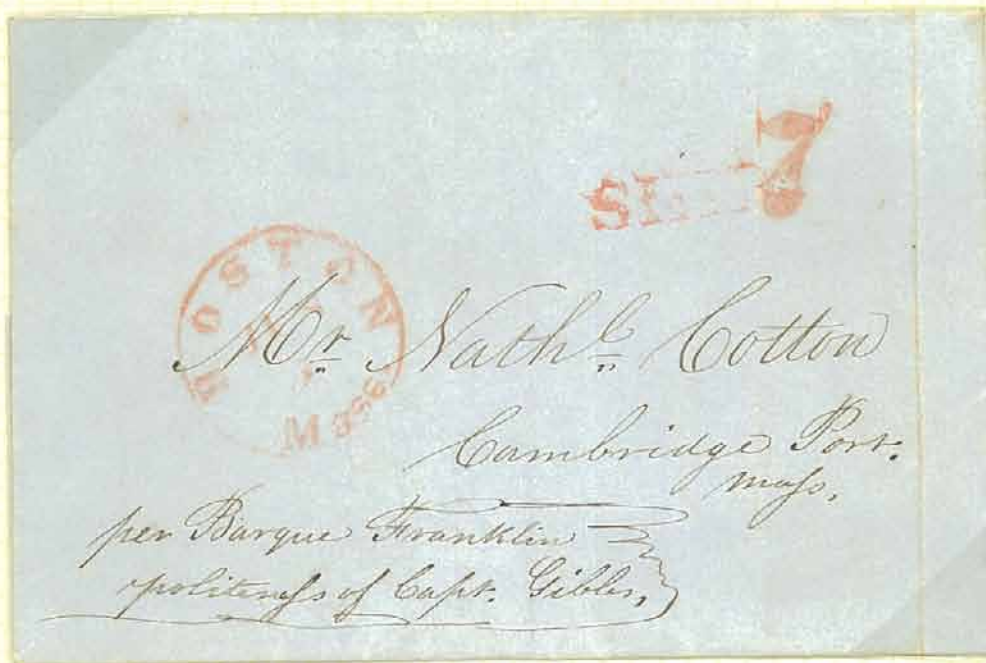 7
SHIP
BOSTON
Mass
Mr. Nathl. Cotton
Cambridge Port.
Mass.
per Barque Franklin
politeness of Capt. Gibbs,